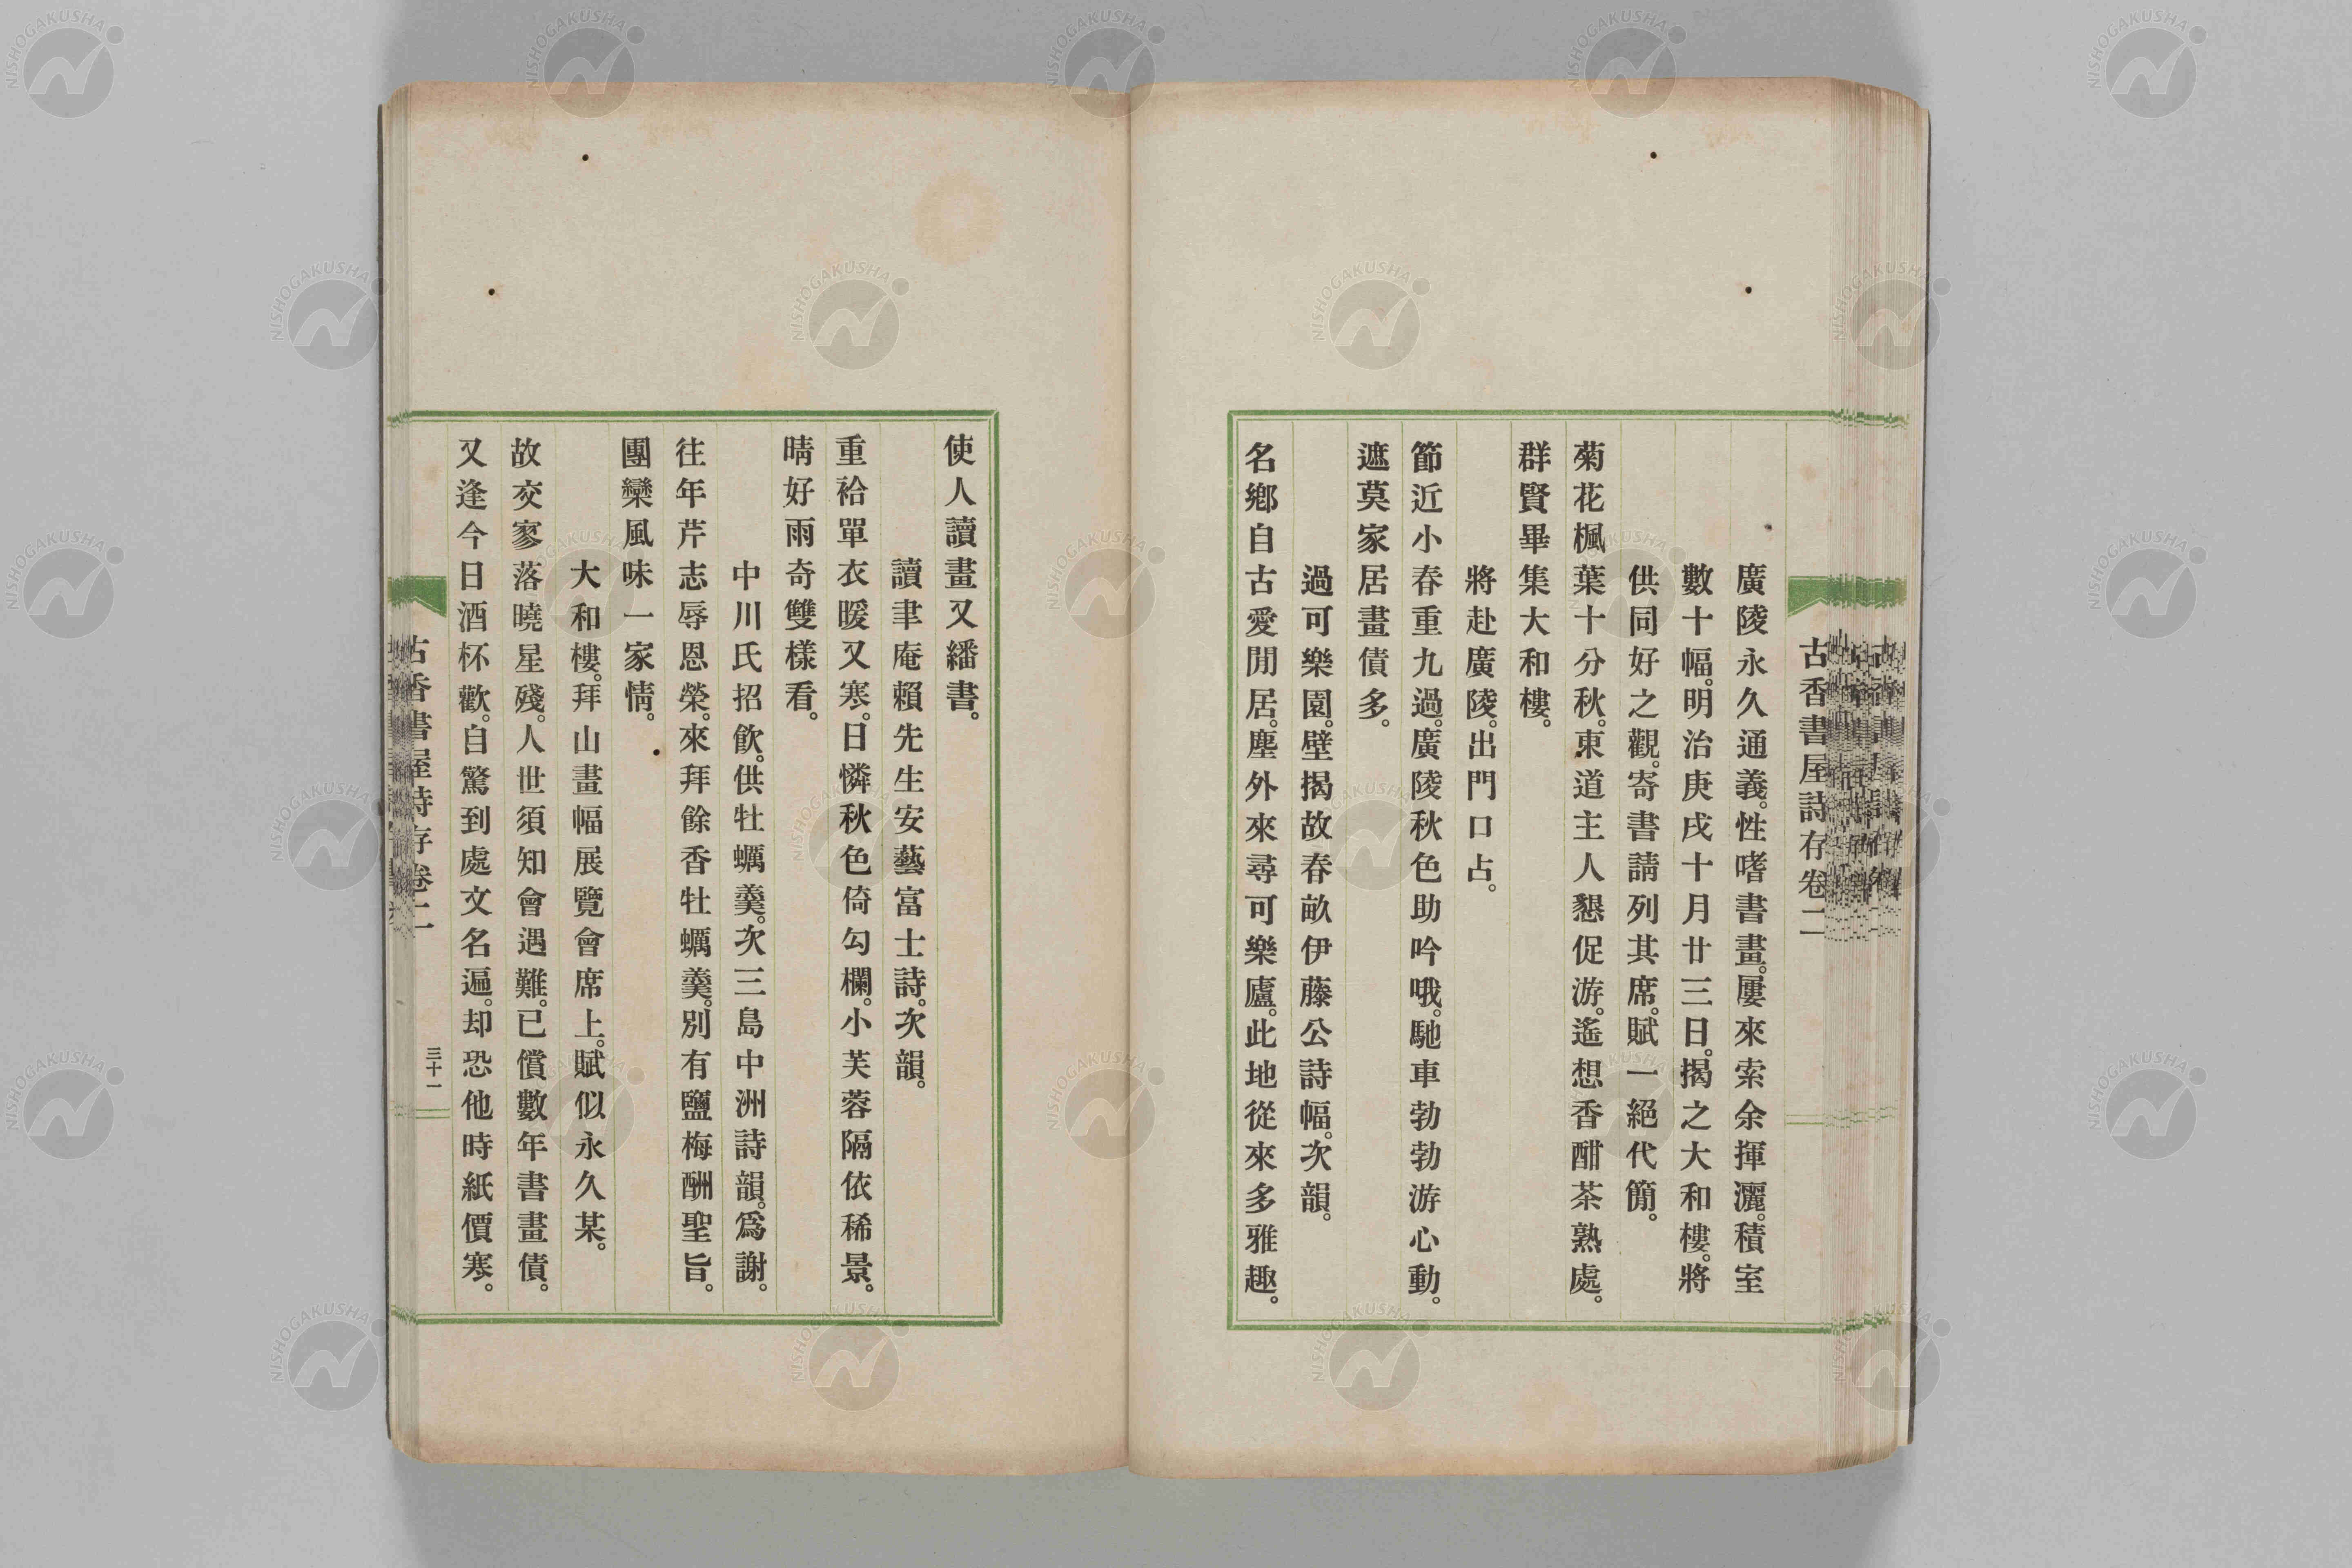 古香書屋詩存卷二
廣陵永久通義。性嗜書畫。屢來索余揮灑。積室
數十幅。明治庚戌十月廿三日。揭之大和樓。將
供同好之觀。寄書請列其席。賦一絕代簡。
菊花楓葉十分秋。東道主人懇促游。遙想香酣茶熟處。
群賢畢集大和樓。
將赴廣陵。出門口占。
節近小春重九過。廣陵秋色助吟哦。馳車勃勃游心動。
遮莫家居畫債多。
過可樂園。壁揭故春畝伊藤公詩幅。次韻。
名鄉自古愛閒居。塵外來尋可樂廬。此地從來多雅趣。
使人讀畫又繙書。
讀聿庵賴先生安藝富士詩。次韻。
重袷單衣暖又寒。日憐秋色倚勾欄。小芙蓉隔依稀景。
晴好雨奇雙樣看。
中川氏招飲。供牡蠣羹。次三島中洲詩韻。爲謝。
往年芹志辱恩榮。來拜餘香牡蠣羹。別有鹽梅酬聖旨。
團欒風味一家情。
大和樓。拜山畫幅展覽會席上。賦似永久某。
故交寥落曉星殘。人世須知會遇難。已償數年書畫債。
又逢今日酒杯歡。自驚到處文名遍。却恐他時紙價寒。
古香書屋詩存卷二
三十一
NISHOGAKUSHA